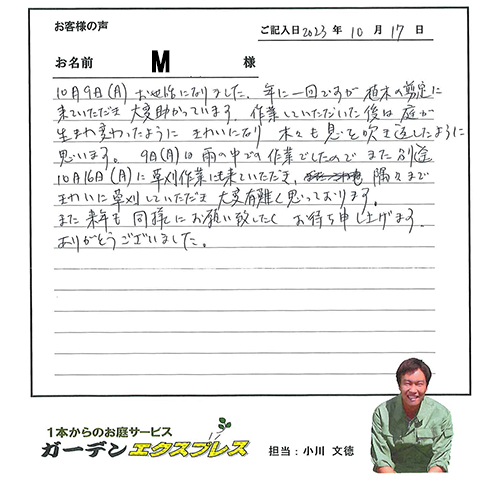 お客様の声
ご記入日2023年10月17日
お名前 M 様
10月9日(月)お世話になりました。年に一回ですが植木の剪定に
来ていただき大変助かっています。作業していただいた後は庭が
生まれ変わったようにきれいになり木々も息を吹き返したように
思います。9日(月)は雨の中での作業でしたのでまた別途
10月16日(月)に草刈作業にも来ていただき、隅々まで
きれいに草刈していただき大変有難く思っております。
また来年も同様にお願い致したくお待ち申し上げます。
ありがとうございました。
1本からのお庭サービス
ガーデンエクスプレス
担当:小川 文徳